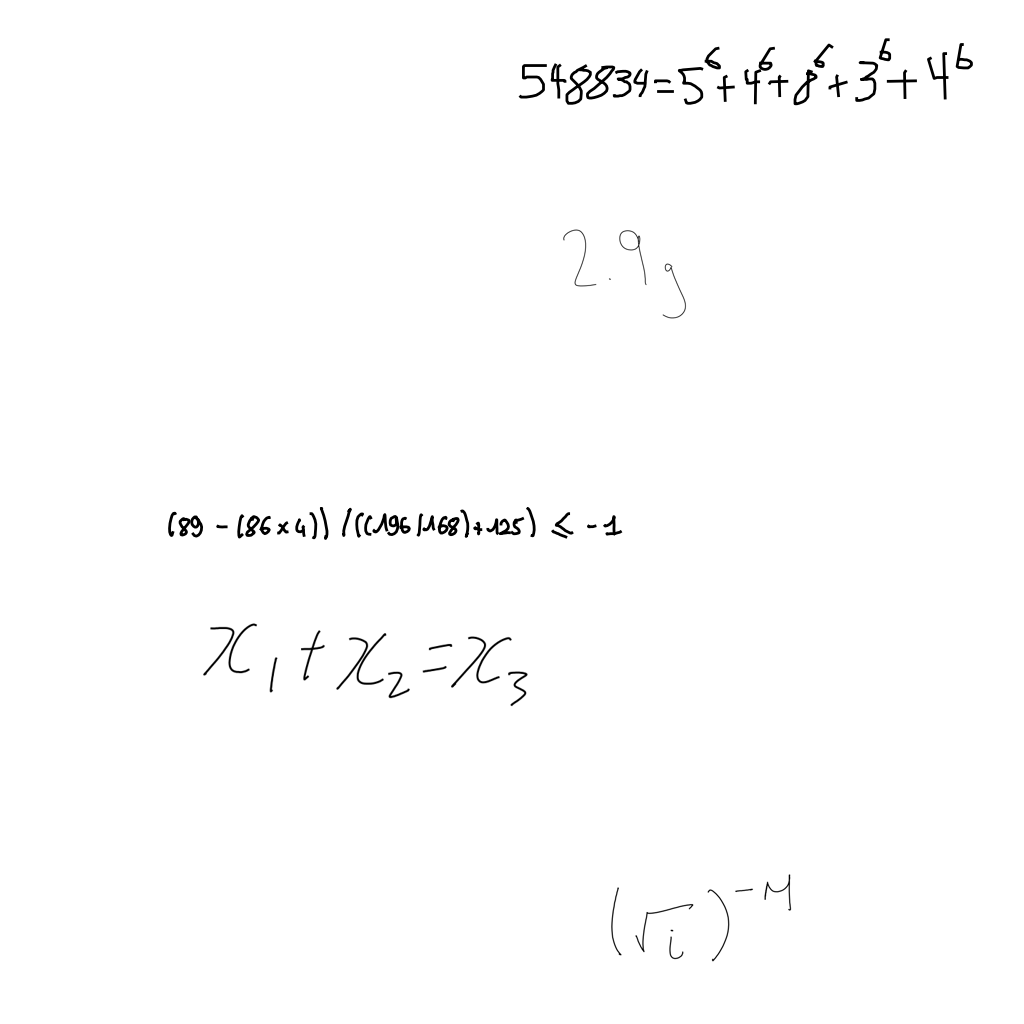 548834=5⁶+4⁶+8⁶+3⁶+4⁶
2.9g
(89 - (86 × 4)) / ((196 / 168) + 125) ≤ -1
x₁+x₂=x₃
(√i)⁻ᴹ